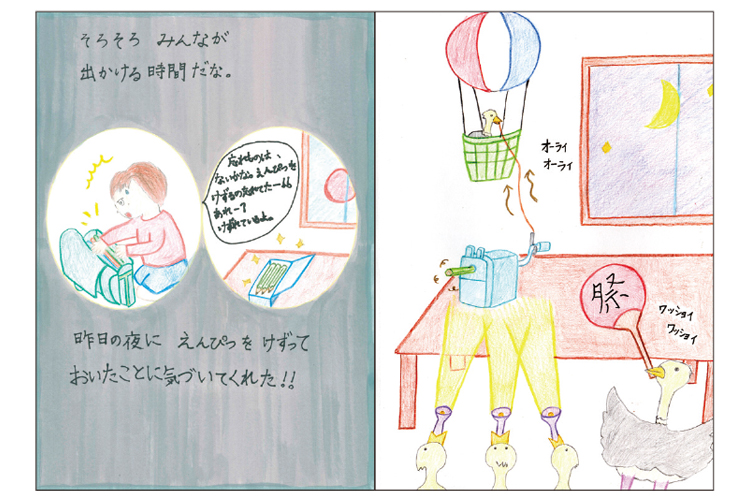 そろそろ みんなが
出かける時間だな。
忘れものは、
ないかな。えんぴつを
けずるの忘れてたーぁぁ
あれー？
けずれているよ。
昨日の夜に えんぴつを けずって
おいたことに気づいてくれた!!
オーライ
オーライ
祭
ワッショイ
ワッショイ